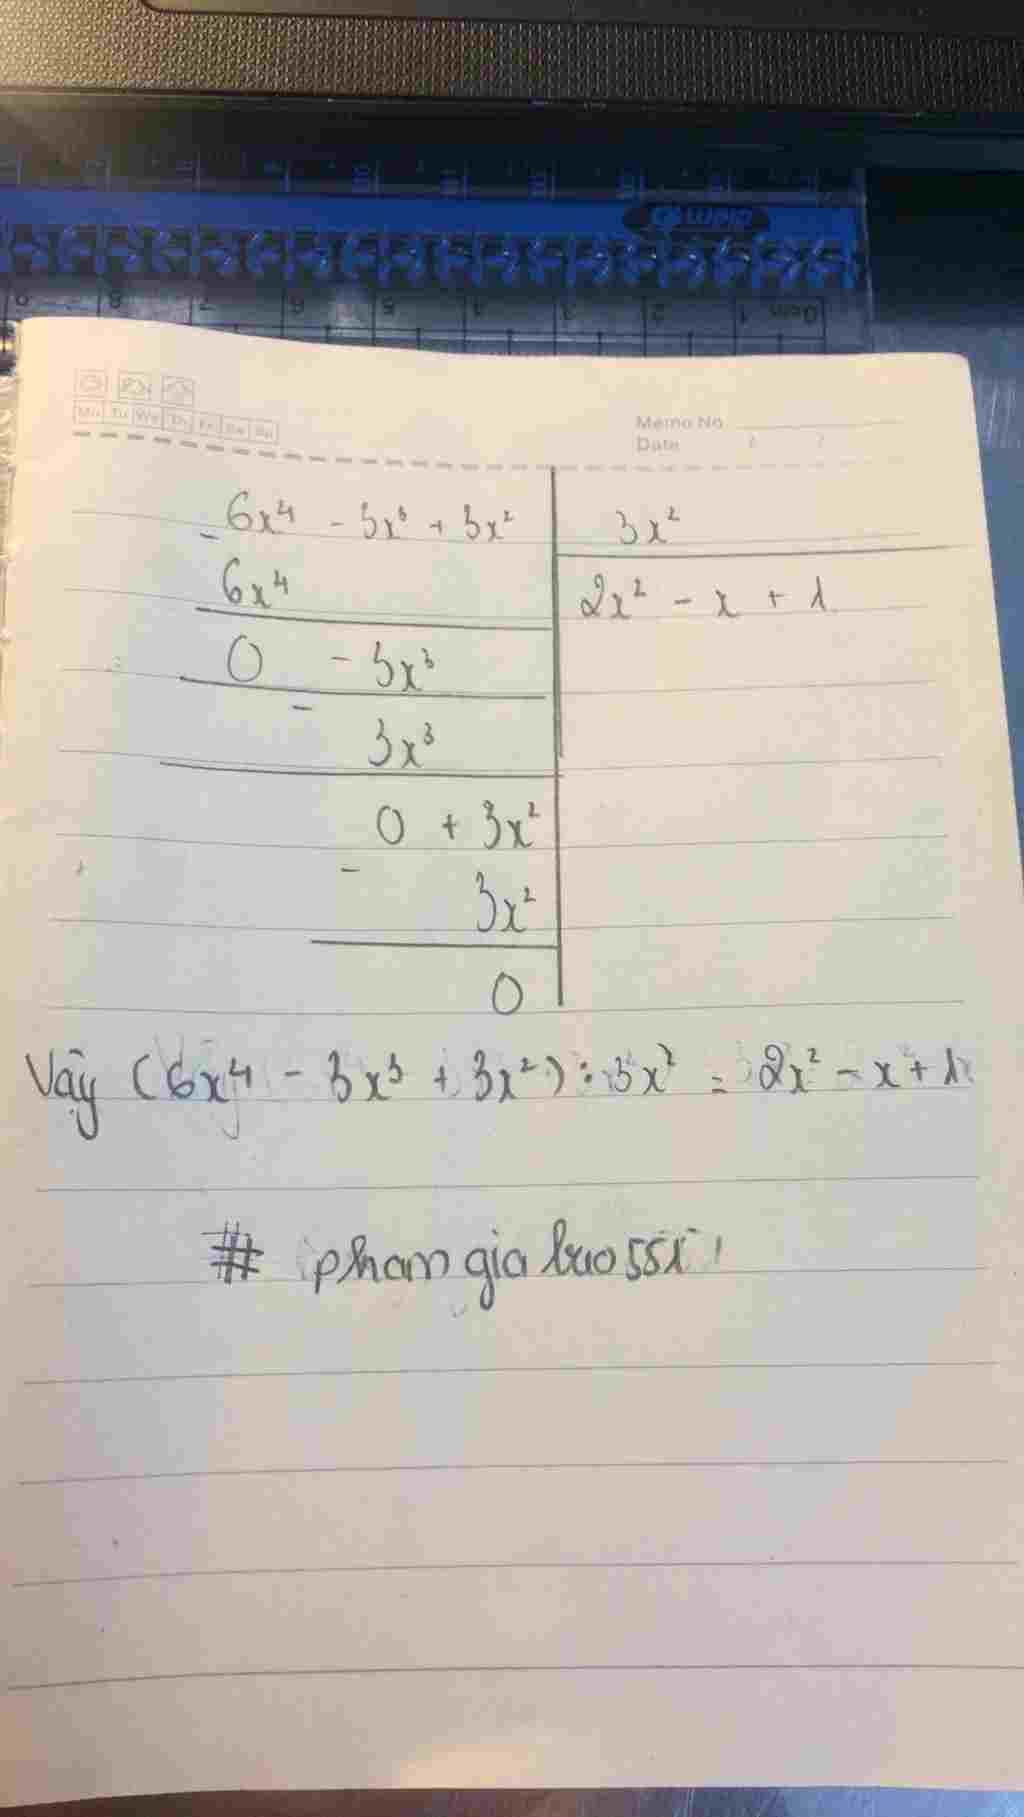 Mo Tu We Th Fr Sa Su
Memo No
Date / /
6x⁴ - 3x³ + 3x² 3x²
- 6x⁴ 2x² - x + 1
0 - 3x³
- 3x³
0 + 3x²
- 3x²
0
Vậy (6x⁴ - 3x³ + 3x²) : 3x² = 2x² - x + 1